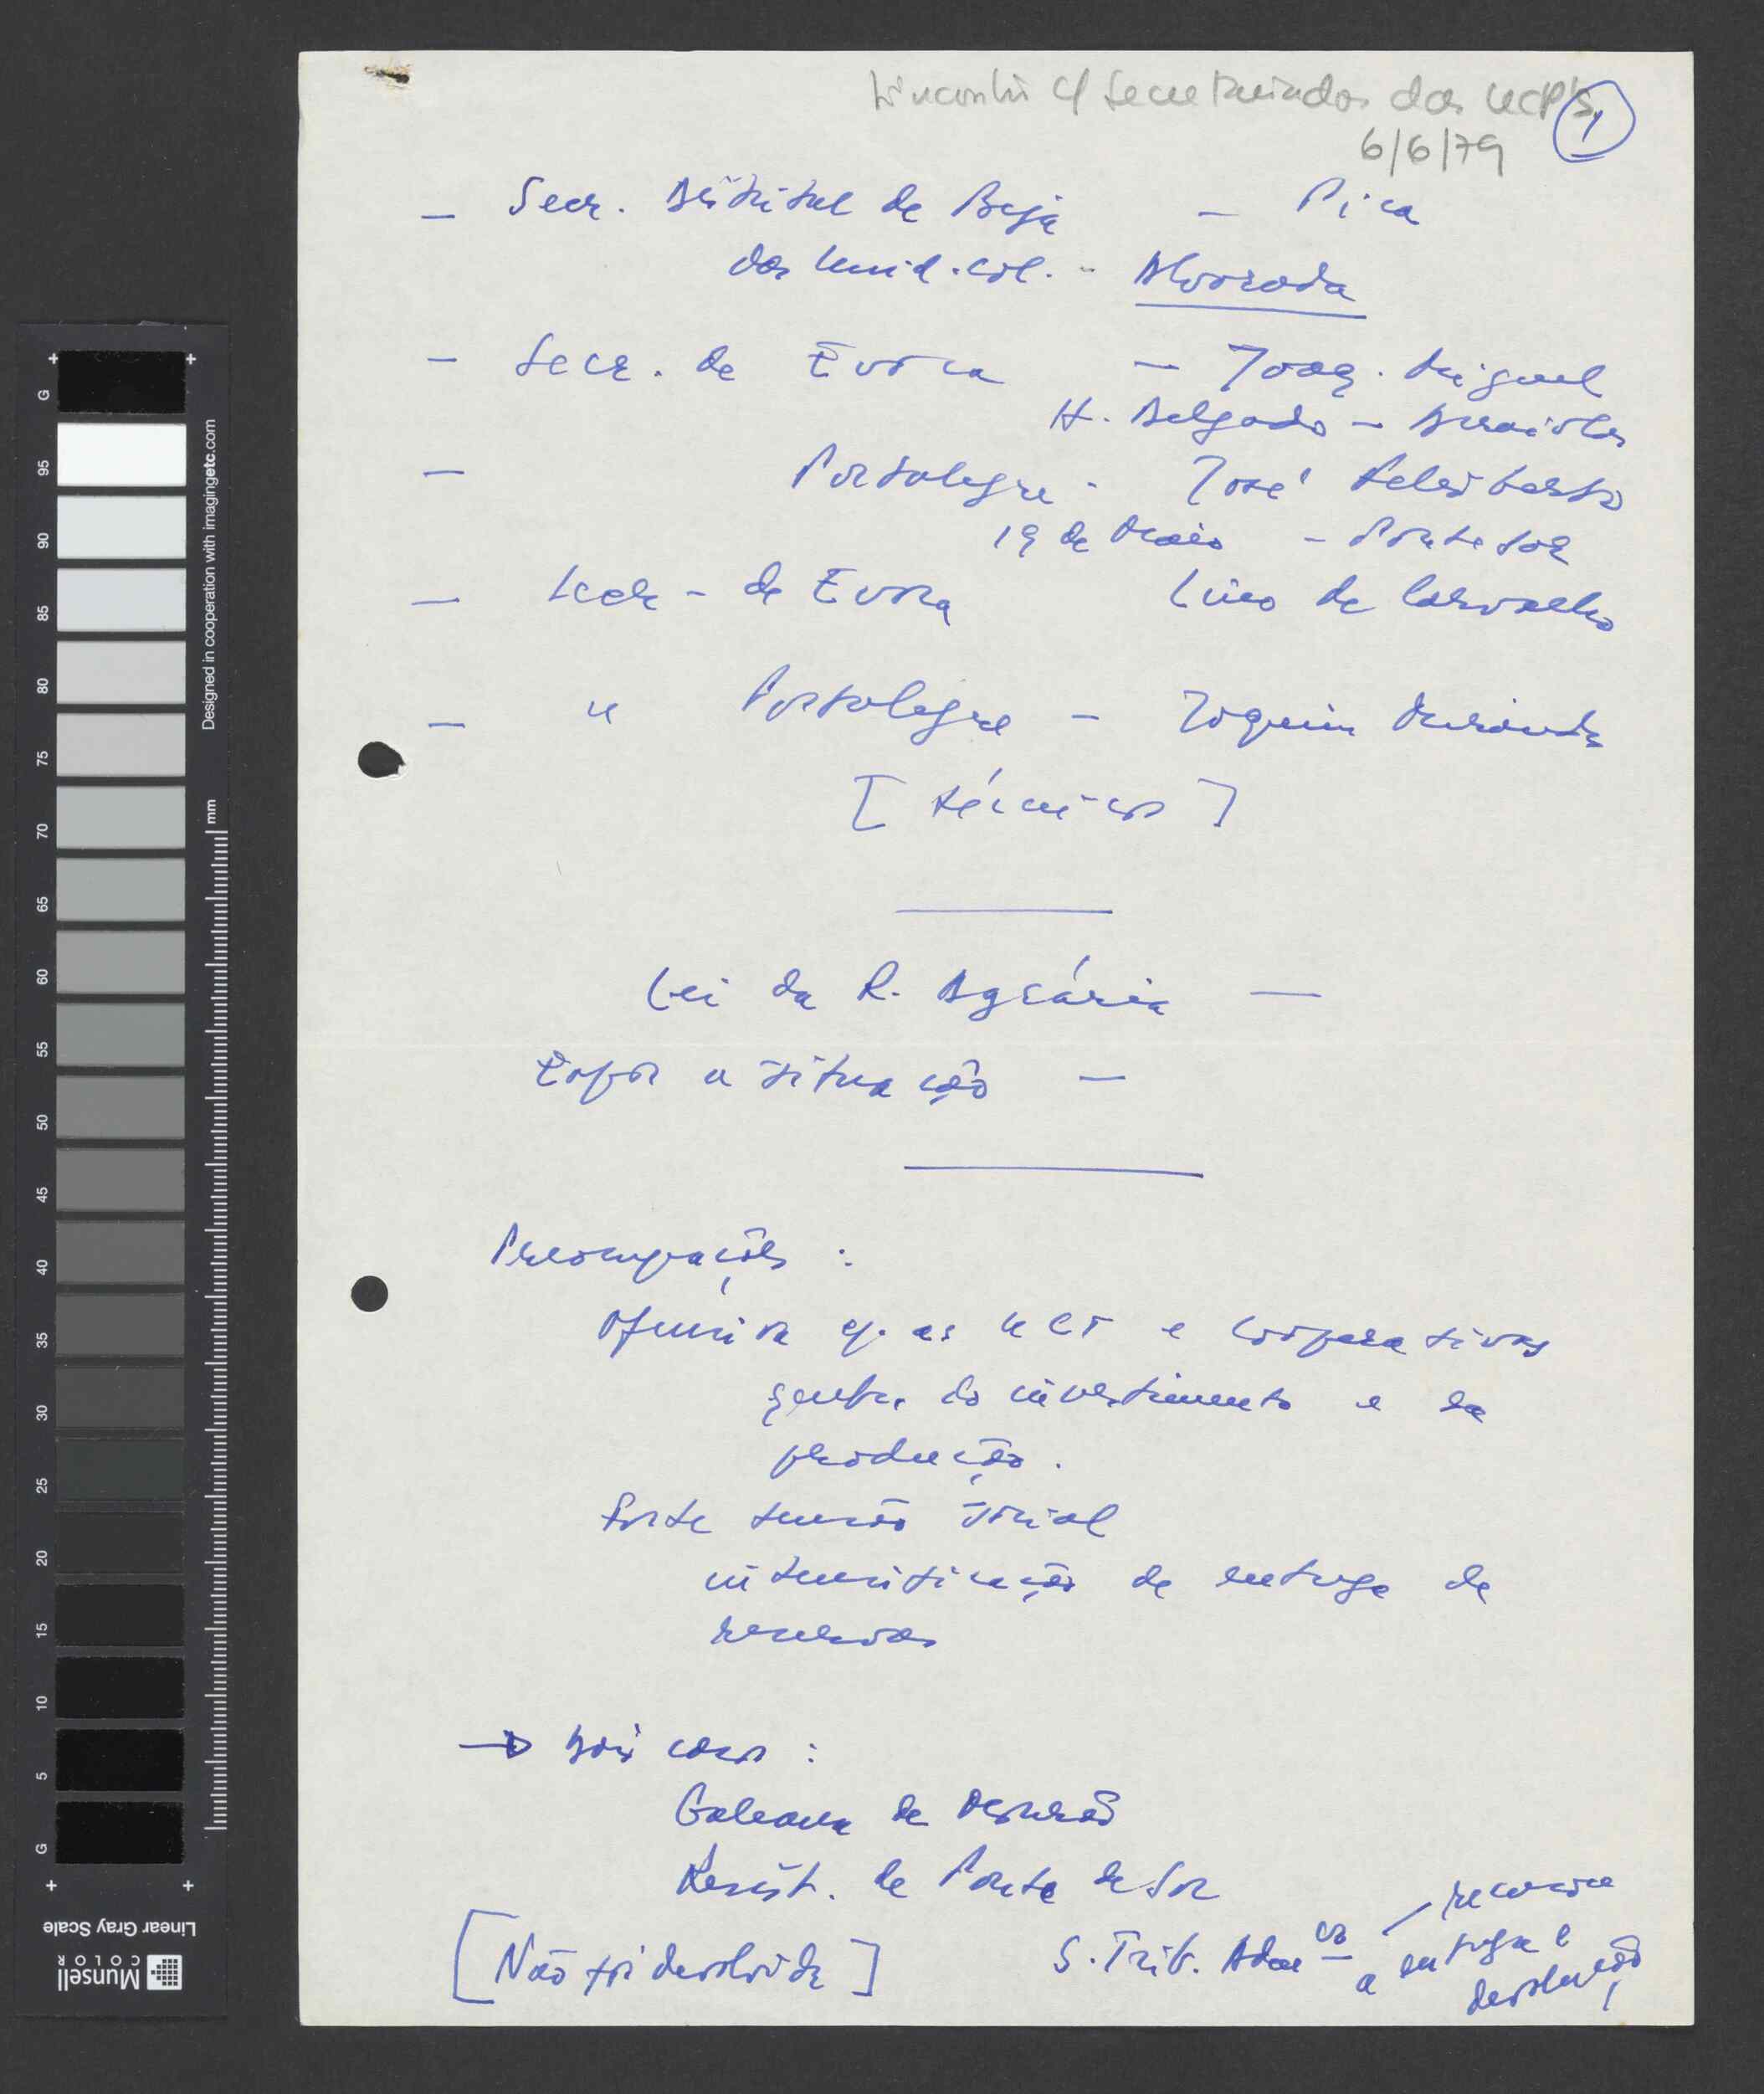 Encontro c/ Secretariados das UCP's
1
6/6/79
— Secr. Distrital de Beja — Pica
das Unid. Col. - Alvorada
— Secr. de Évora — Joaq. Miguel
H. Delgado —
— Portalegre - José
19 de Maio - Ponte Sor
— Secr - de Évora Lino de Carvalho
— " Portalegre — Joaquim Miranda
[técnicos]
Lei da R. Agrária —
Expor a situação —
Preocupações :
Ofensiva c/. as UCP e Cooperativas
quebra do investimento e da
produção.
Forte tensão social
intensificação de entrega de
reservas
→ Dois casos :
Galeana de
Resist. de Ponte de Sor
[Não foi devolvida]
S. Trib. Admco — reconsice
a entrega e
devolução
Designed in cooperation with imagingetc.com
mm
G 95 90 85 80 75 70 65 60 55 50 45 40 35 30 25 20 15 10 5 G
Linear Gray Scale
Munsell
COLOR